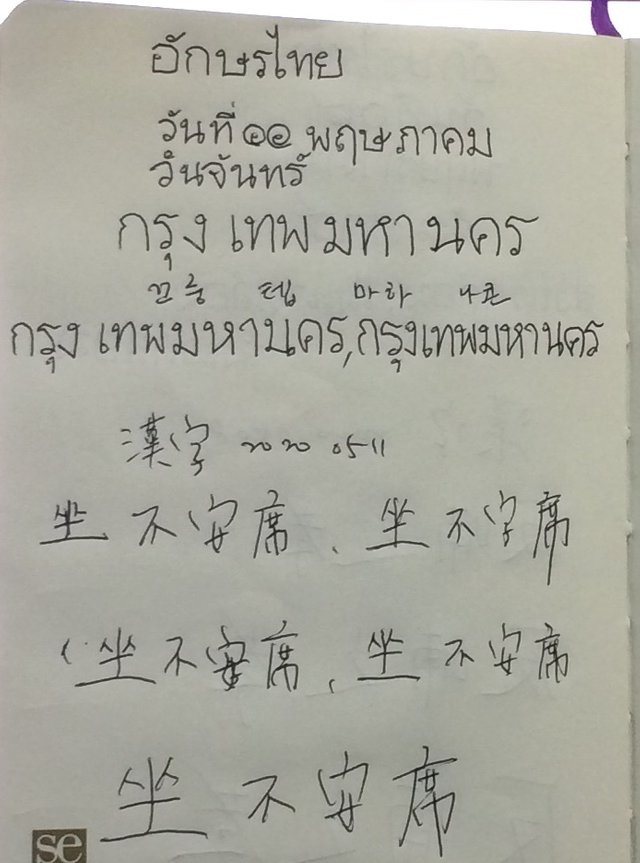 อักษรไทย
วันที่ ๑๑ พฤษภาคม
วันจันทร์
กรุงเทพมหานคร
끄룽 텝 마하 나콘
กรุงเทพมหานคร, กรุงเทพมหานคร
漢字 2020 0511
坐不安席、坐不安席
坐不安席、坐不安席
坐不安席
se